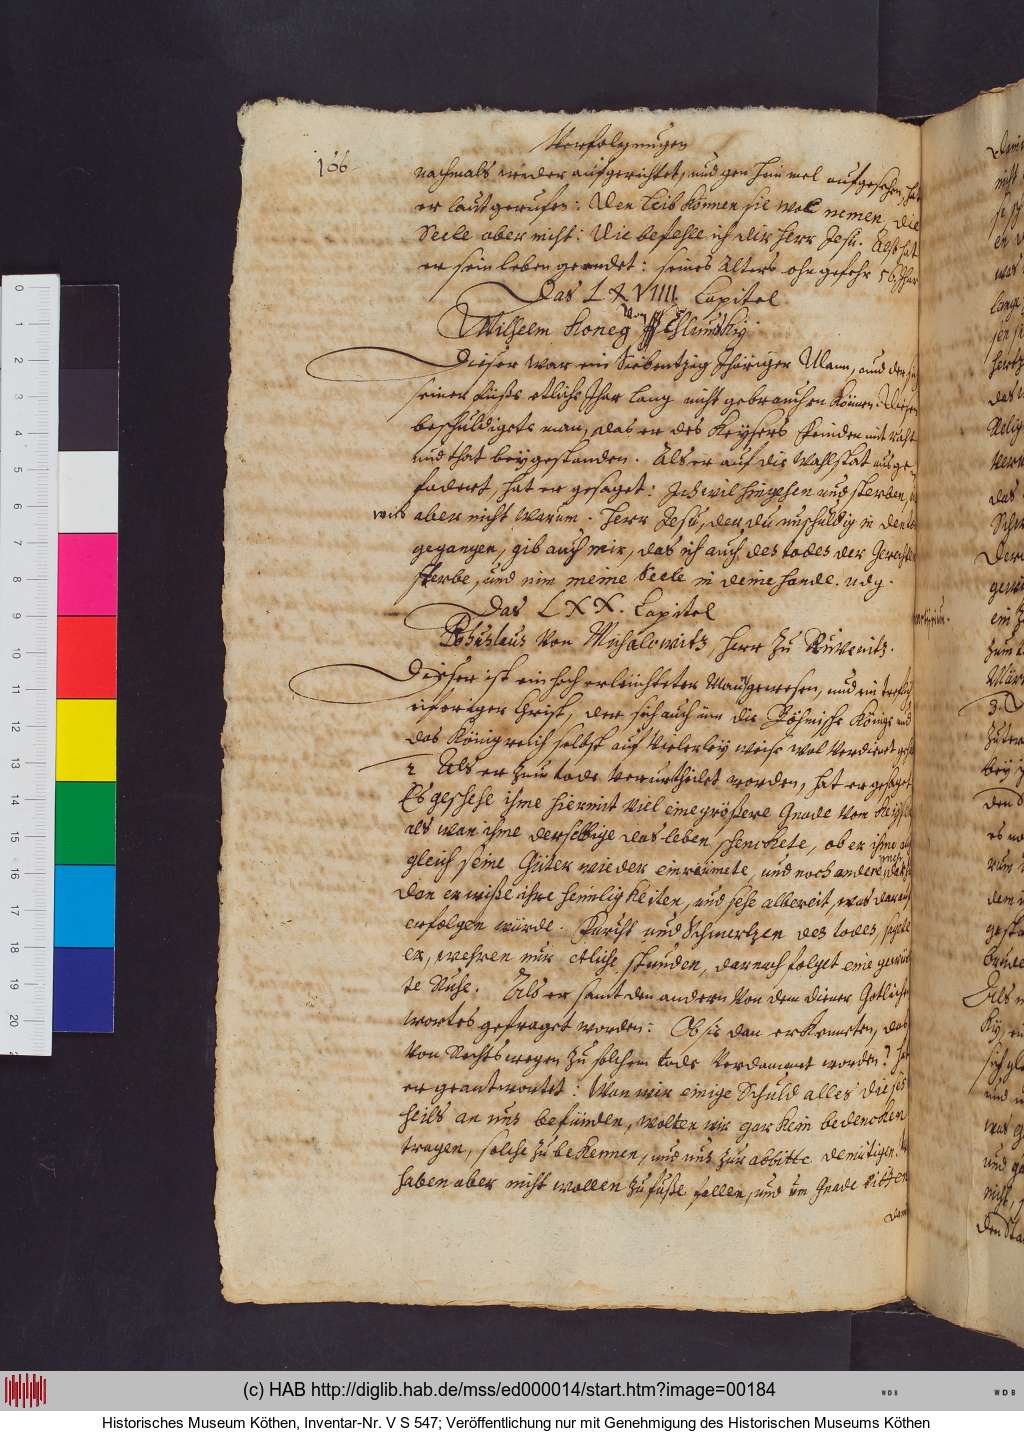 Verfolgungen
166
nachmals wieder aufgerichtet, und gen Himmel aufgesehen, hat
er laut gerufen: Den Leib können sie wol nemen, die
Seele aber nicht: Die befehle ich dir Herr Jesu. Also hat
er sein leben geendet: seines Alters ohngefehr 56. Jhar
Das LXVIIII. Capitel
Wilhelm Koneg von
Dieser war ein Siebentzig Jhäriger Mann, und der
seiner Füße etliche Jhar lang nicht gebrauchen können. Diesen
beschuldigete man, das er des Keysers Feinden mit raht
und that beygestanden. Als er auf die Wahlstat ausge¬
fodert, hat er gesaget: Ich wil hingehen und sterben,
weis aber nicht warum. Herr Jesu, der du unschuldig in den todt
gegangen, gib auch mir, das ich auch des todes der Gerechten
sterbe, und nim meine Seele in deine hände. udg.
Das LXX. Capitel
Bohuslaus von Michalowitz, Herr zu Ruvenitz.
Dieser ist ein hoch erleuchteter Man gewesen, und ein treflich
eiferiger Christ, der sich auch um die Böhmische Könige und
das Königreich selbst auf vielerley weise wol verdienet
2 Als er zum tode verurtheilet worden, hat er gesaget
Es geschehe ihme hiermit viel eine größere Gnade von Keyser
als wan ihme derselbige das leben schenckete, ob er ihme
gleich seine Güter wieder einreümete, und noch andere
Dan er wiße ihre heimligkeiten, und sehe albereit, was daraus
erfolgen würde. Furcht und Schmertzen des todes, sagete
er, wehren nur etliche stunden, darnach folget eine gewün¬
te Ruhe. Als er samt den andern von dem diener Gotliches
wortes gefraget worden: Ob sie dan erkenneten, das
von Rechts wegen zu solchem tode verdammet worden? hat
er geantwortet: Wan wir einige Schuld alles dieses
heils an uns befünden, wolten wir gar kein bedencken
tragen, solche zu bekennen, und uns zur abbitte demütigen.
haben aber nicht wollen zu fuße fallen, und um Gnade bitten
(c) HAB http://diglib.hab.de/mss/ed000014/start.htm?image=00184
Historisches Museum Köthen, Inventar-Nr. V S 547; Veröffentlichung nur mit Genehmigung des Historischen Museums Köthen